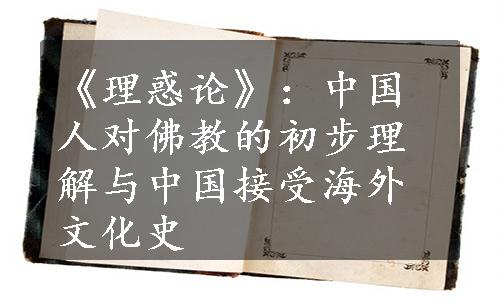 《理惑论》：中国
人对佛教的初步理
解与中国接受海外
文化史